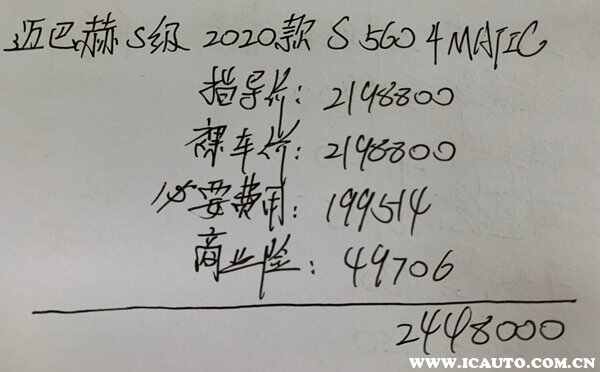 迈巴赫S级 2020款 S 560 4MATIC
指导价: 2198800
裸车价: 2198800
必要费用: 199514
商业险: 49706
2448000
WWW.ICAUTO.COM.CN